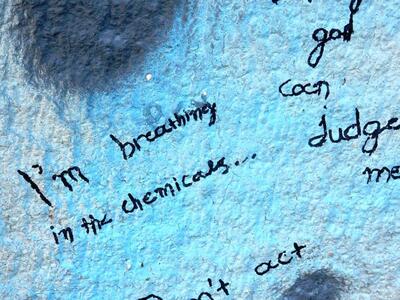 I'm breathing
in the chemicals...
god
can
Judge
me
Don't act